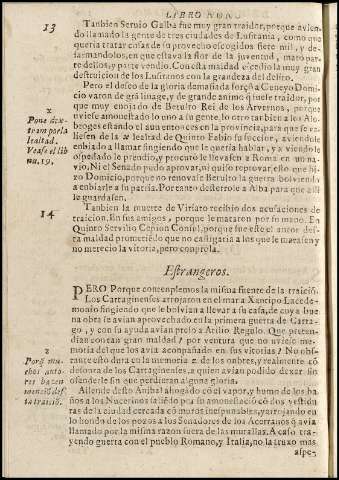 LIBRO NONO
13
Tanbien Servio Galba fue muy gran traidor, porque avien-
do llamado la gente de tres ciudades de Lusitania, como que
queria tratar cosas de su provecho escogidos siete mil, y de-
sarmandolos, en que estava la flor de la juventud, mato par-
te dellos, y parte vendio. Con esta maldad ecedio la muy gran
destruicion de los Lusitanos con la grandeza del delito.
Pero el deseo de la gloria demasiada forçò a Cneyo Domi-
cio varon de grā linage, y de grande animo q̄ fuese traidor, por
que muy enojado de Betulto Rei de los Arvernos, porque
uviese amonestado a uno a su gente, lo otro tanbien a los Alo-
broges estando el aun entonces en la provincia, para que se va-
liesen de la lealtad de Quinto Fabio su suceçor, aviendole
enbiado a llamar fingiendo que le queria hablar, y a viendole
ospedado le prendio, y procurò le llevasen a Roma en un na-
vio. Ni el Senado pudo aprovar, ni quiso reprovar esto que hi-
zo Domicio, porque no renovase Betulto la guerra bolviendo
a enbiarle a su patria. Por tanto desterrole a Alba para que alli
le guardasen.
2
Pone dex-
tram por la
lealtad.
Vease el lib
nu. 19.
14
Tanbien la muerte de Viriato recibio dos acusaciones de
traicion. En sus amigos, porque le mataron por su mano. En
Quinto Servilio Cepion Consul, porque fue este el autor des-
ta maldad prometiēdo que no castigaria a los que le matasen y
no merecio la vitoria, pero conprola.
Estrangeros.
PERO Porque contenplemos la misma fuente de la traiciō.
Los Cartaginenses arrojaron en el mar a Xantipo Lacede-
monio fingiendo que le bolvian a llevar a su casa, de cuya bue-
na obra se avian aprovechado en la primera guerra de Carta-
go, y con su ayuda avian preso a Atilio Regulo. Que preten-
dian con tan gran maldad? por ventura que no uviese me-
moria del que los avia aconpañado en sus vitorias? No obs-
tante esto dura en la memoria de los onbres, y realmente cō
desonra de los Cartaginenses, a quien avian podido dexar sin
ofenderle sin que perdieran alguna gloria.
2
Porq̄ mu-
chos auto-
res hazen
menciō des
ta traiciō.
Allende desto Anibal ahogado cō el vapor, y humo de los ba-
ños a los Nucerinos salidos por su amonestaciō cō dos vestidu-
ras de la ciudad cercada cō muros inespunables, y arrojando en
lo hondo de los pozos a los Senadores de los Acerranos q̄ avia
llamado por la misma razon fuera de las murallas. A caso tra-
yendo guerra con el pueblo Romano, y Italia, no la truxo mas
aspe-